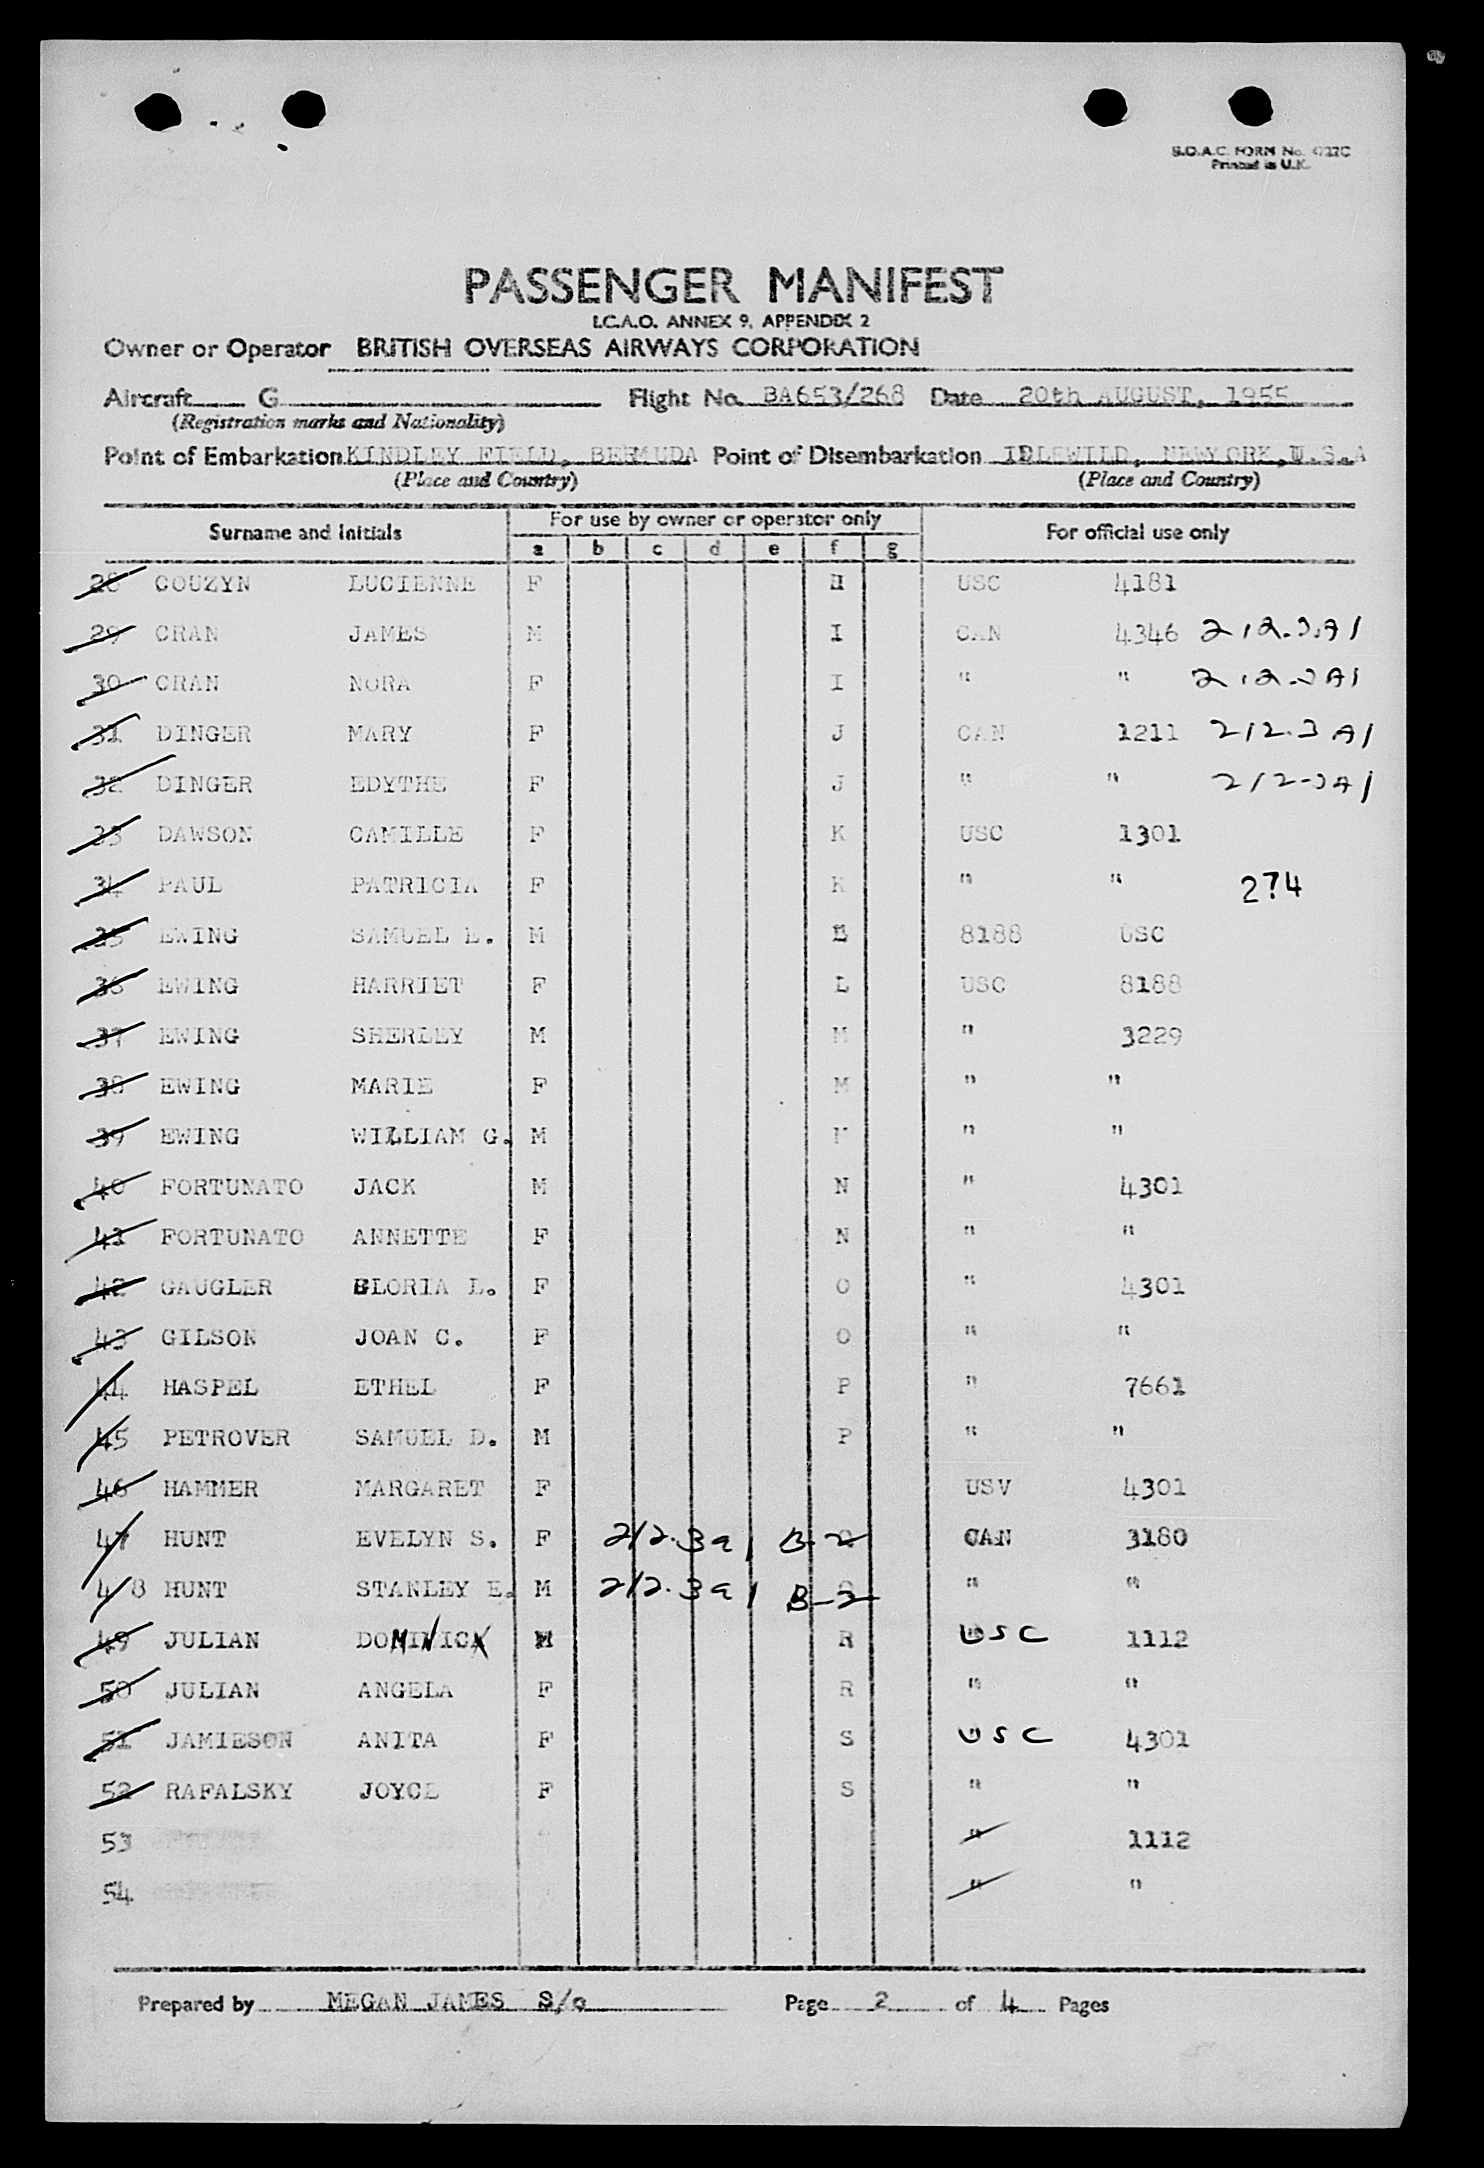 B.O.A.C. FORM No.
Printed in U.K.
PASSENGER MANIFEST
I.C.A.O. ANNEX 9, APPENDIX 2
Owner or Operator BRITISH OVERSEAS AIRWAYS CORPORATION
Aircraft G Flight No. BA653/268 Date 20th AUGUST, 1955
(Registration marks and Nationality)
Point of Embarkation KINDLEY FIELD, BERMUDA Point of Disembarkation IDLEWILD, NEWYORK, U.S.A
(Place and Country) (Place and Country)
Surname and Initials For use by owner or operator only For official use only
a b c d e f g
28 COUZYN LUCIENNE F H USC 4181
29 CRAN JAMES M I CAN 4346 212.3.A1
30 CRAN NORA F I " " 212.3A1
31 DINGER MARY F J CAN 1211 212.3 A1
32 DINGER EDYTHE F J " " 212-3A1
33 DAWSON CAMILLE F K USC 1301
34 PAUL PATRICIA F K " " 274
35 EWING SAMUEL E. M 8188 USC
36 EWING HARRIET F L USC 8188
37 EWING SHERLEY M M " 3229
38 EWING MARIE F M " "
39 EWING WILLIAM G. M " "
40 FORTUNATO JACK M N " 4301
41 FORTUNATO ANNETTE F N " "
42 GAUGLER GLORIA L. F O " 4301
43 GILSON JOAN C. F O " "
44 HASPEL ETHEL F P " 7661
45 PETROVER SAMUEL D. M P " "
46 HAMMER MARGARET F USV 4301
47 HUNT EVELYN S. F 212.3a1 B-2 CAN 3180
48 HUNT STANLEY E. M 212.3a1 B-2 " "
49 JULIAN DOMINICK M R USC 1112
50 JULIAN ANGELA F R " "
51 JAMIESON ANITA F S USC 4301
52 RAFALSKY JOYCE F S " "
53 " 1112
54 " "
Prepared by MEGAN JAMES S/o Page 2 of 4 Pages